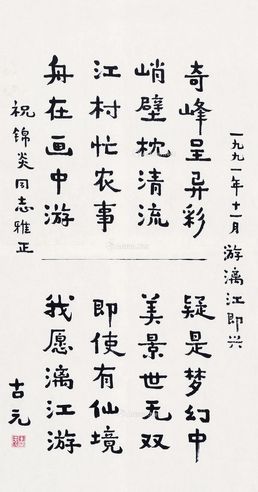 一九九一年十一月 游漓江即兴
奇峰呈异彩
峭壁枕清流
江村忙农事
舟在画中游
疑是梦幻中
美景世无双
即使有仙境
我愿漓江游
祝锦炎同志雅正
古元